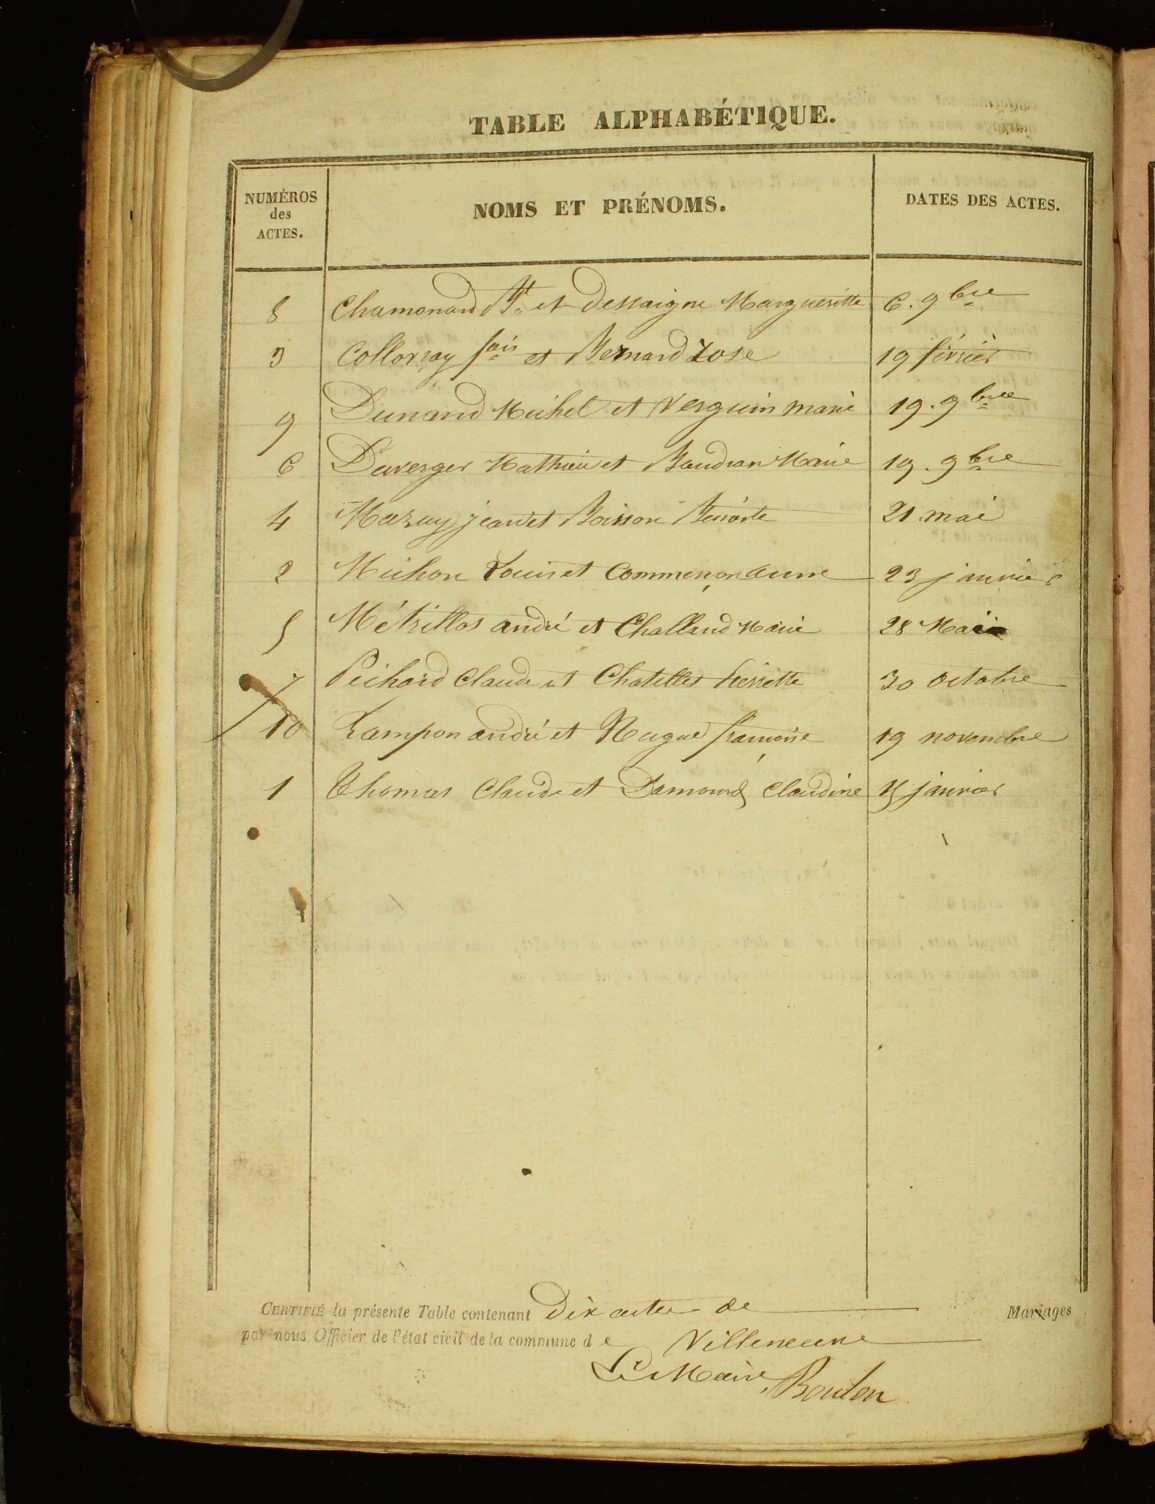 TABLE ALPHABÉTIQUE.
NUMÉROS des ACTES. NOMS ET PRÉNOMS. DATES DES ACTES.
8 Chamonard Pt. et Dessaigne Margueritte 6. 9bre
3 Collonjay fois et Bernard Rose 19 février
9 Dunand Michel et Verguin marie 19. 9bre
6 Duverger Mathieu et Baudran Marie 19. 9bre
4 Mazuy jean et Boisson Benoite 21 mai
2 Michon Louis et Commerçon anne 23 janvier
5 Métrillos andré et Challand Marie 28 Mai
7 Pichard Claude et Chatillet pierrette 30 octobre
10 Rampon andré et Nugue françoise 19 novembre
1 Thomas Claude et Damour Claudine 15 janvier
CERTIFIÉ la présente Table contenant Dix actes de Mariages
par nous Officier de l'état civil de la commune de Villeneuve
Le Maire, Boulon